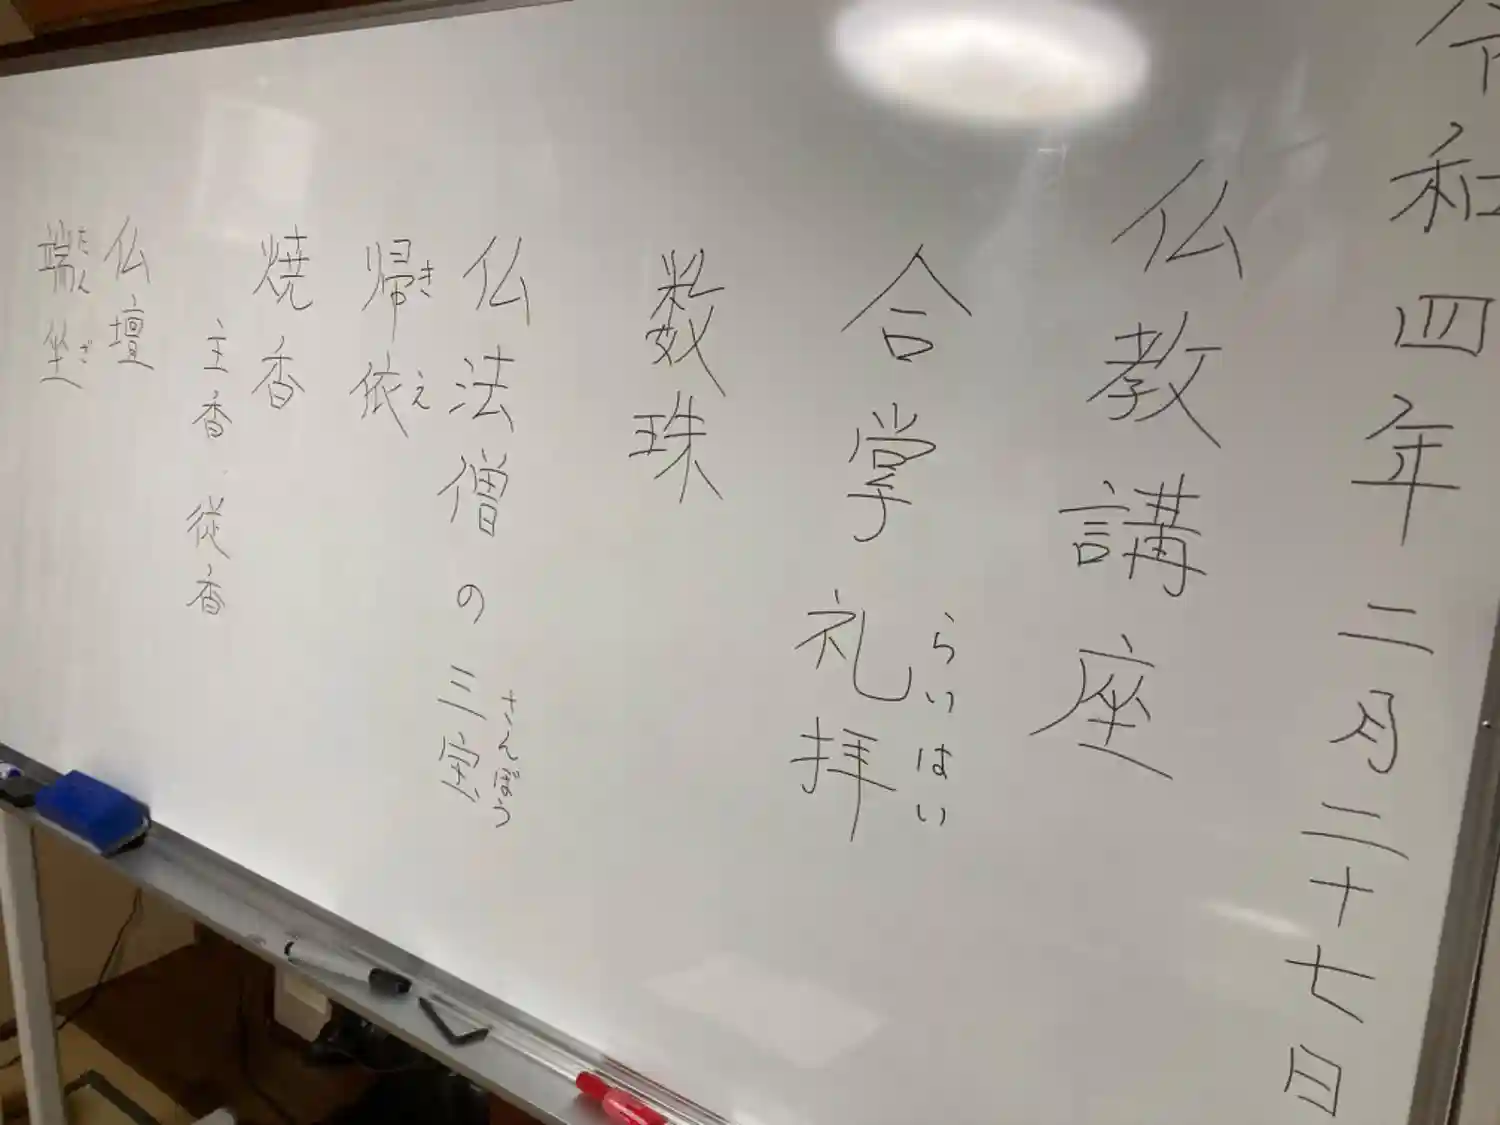 令和四年二月二十七日
仏教講座
合掌礼拝
らいはい
数珠
仏法僧の三宝
さんぼう
帰依
きえ
焼香
主香・従香
仏壇
端坐
たんざ